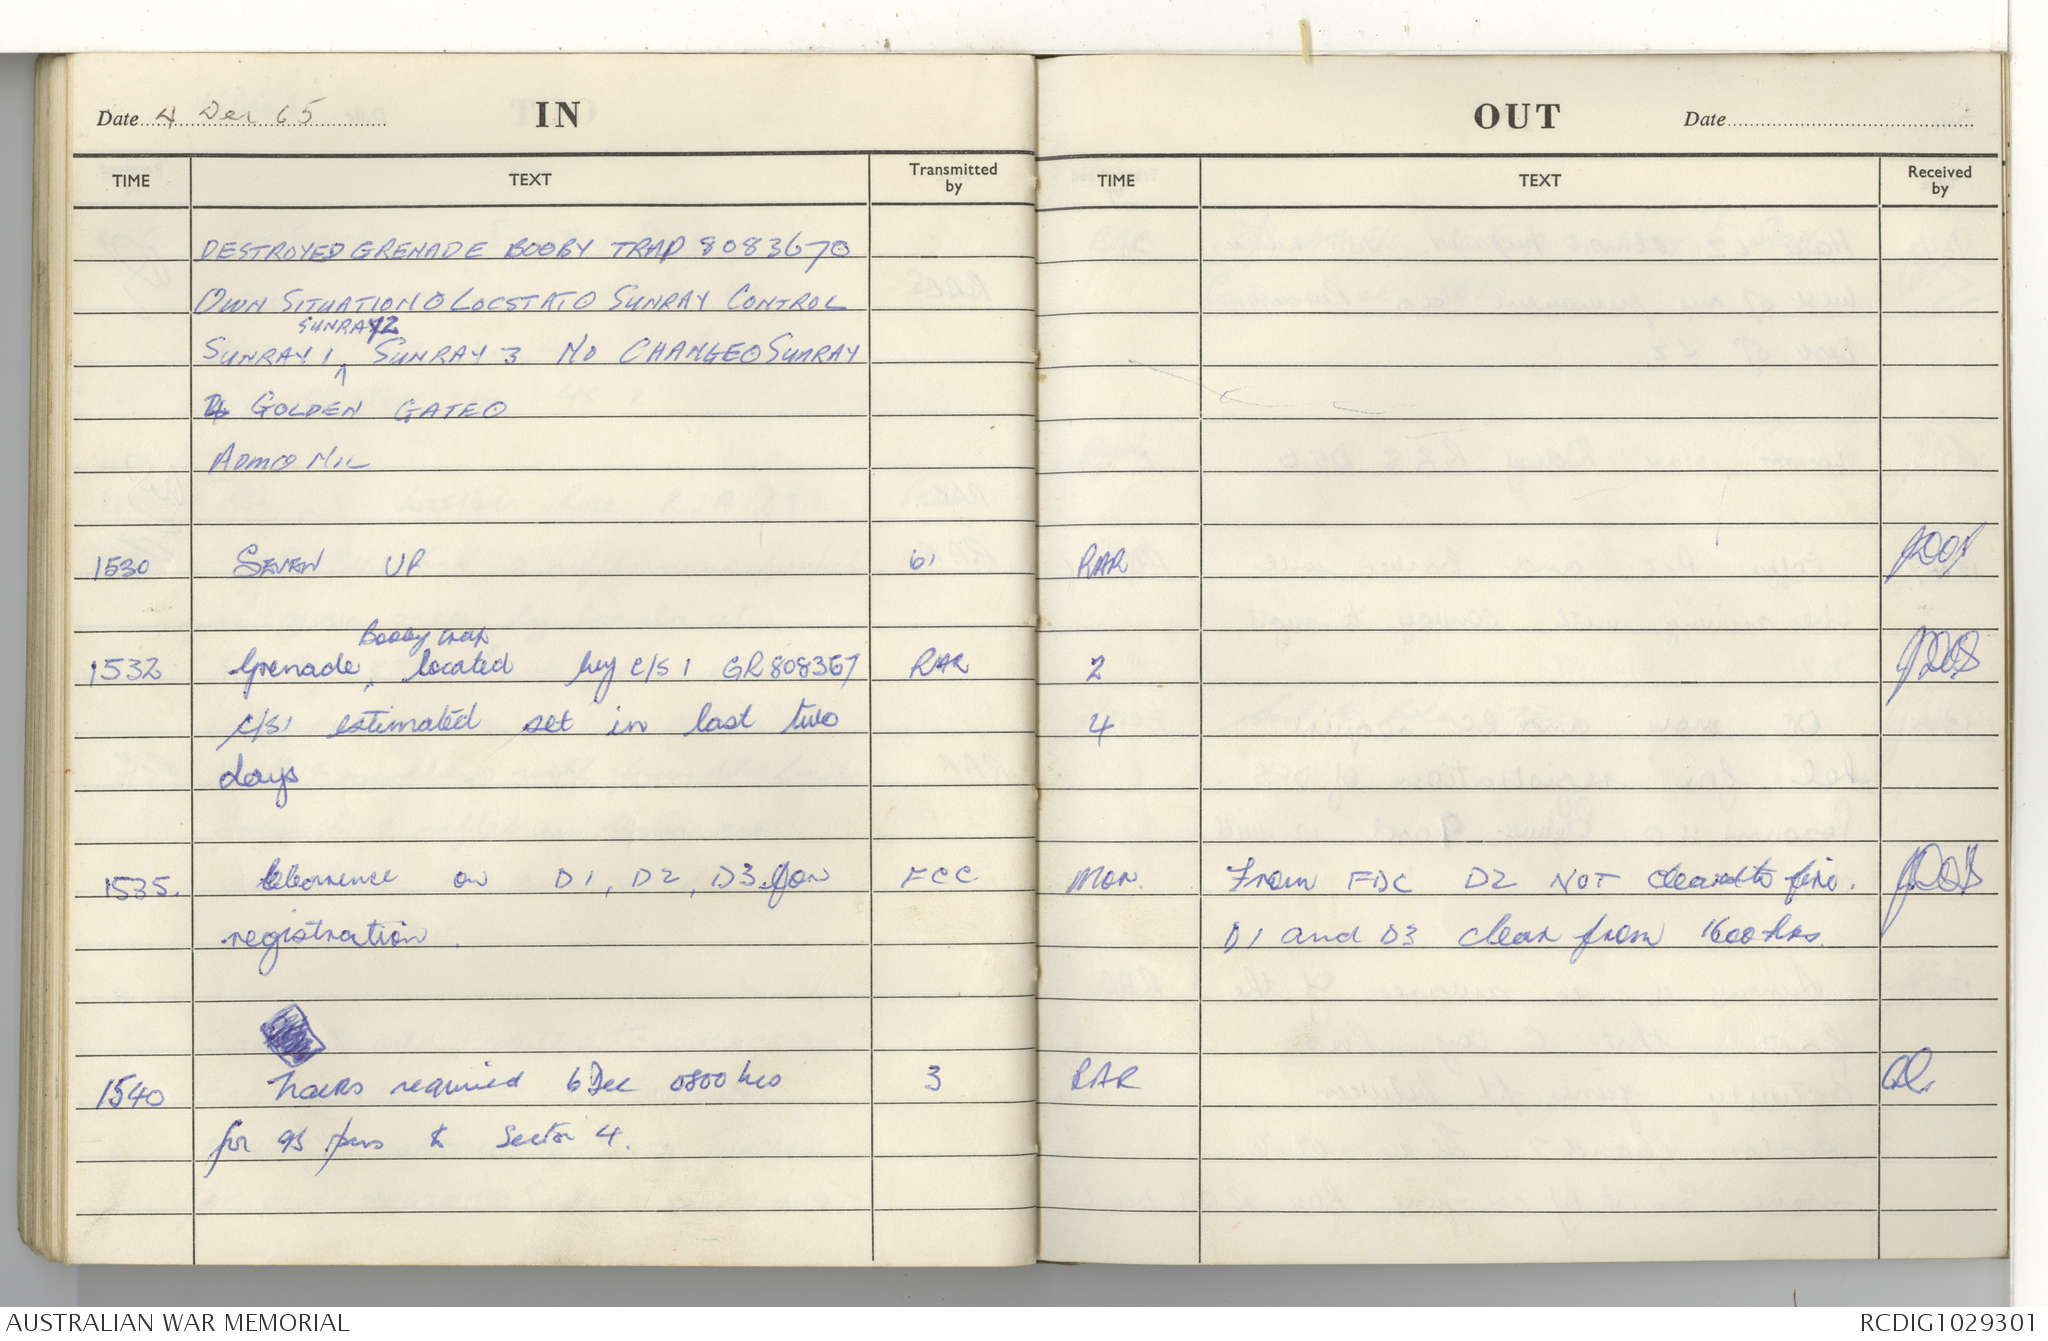 Date 4 Dec 65
IN
TIME
TEXT
Transmitted by
DESTROYED GRENADE BOOBY TRAP 8083670
OWN SITUATION⊙ LOCSTAT⊙ SUNRAY CONTROL
SUNRAY 2
SUNRAY 1 ^ SUNRAY 3 NO CHANGE⊙ SUNRAY
4 GOLDEN GATE⊙
ADM⊙ NIL
1530 SEVEN UP 61
Booby trap
1532 Grenade, located by c/s 1 GR 808367 RAR
c/s 1 estimated set in last two
days
1535. Clearance on D1, D2, D3 for FCC
registration.
1540 Trucks required 6 Dec 0800 hrs 3
for 95 pers Sector 4.
OUT
Date
TIME
TEXT
Received by
RAR
2
4
Mor. From FDC D2 NOT clear to fire.
D1 and D3 clear from 1600 hrs.
RAR
AUSTRALIAN WAR MEMORIAL
RCDIG1029301